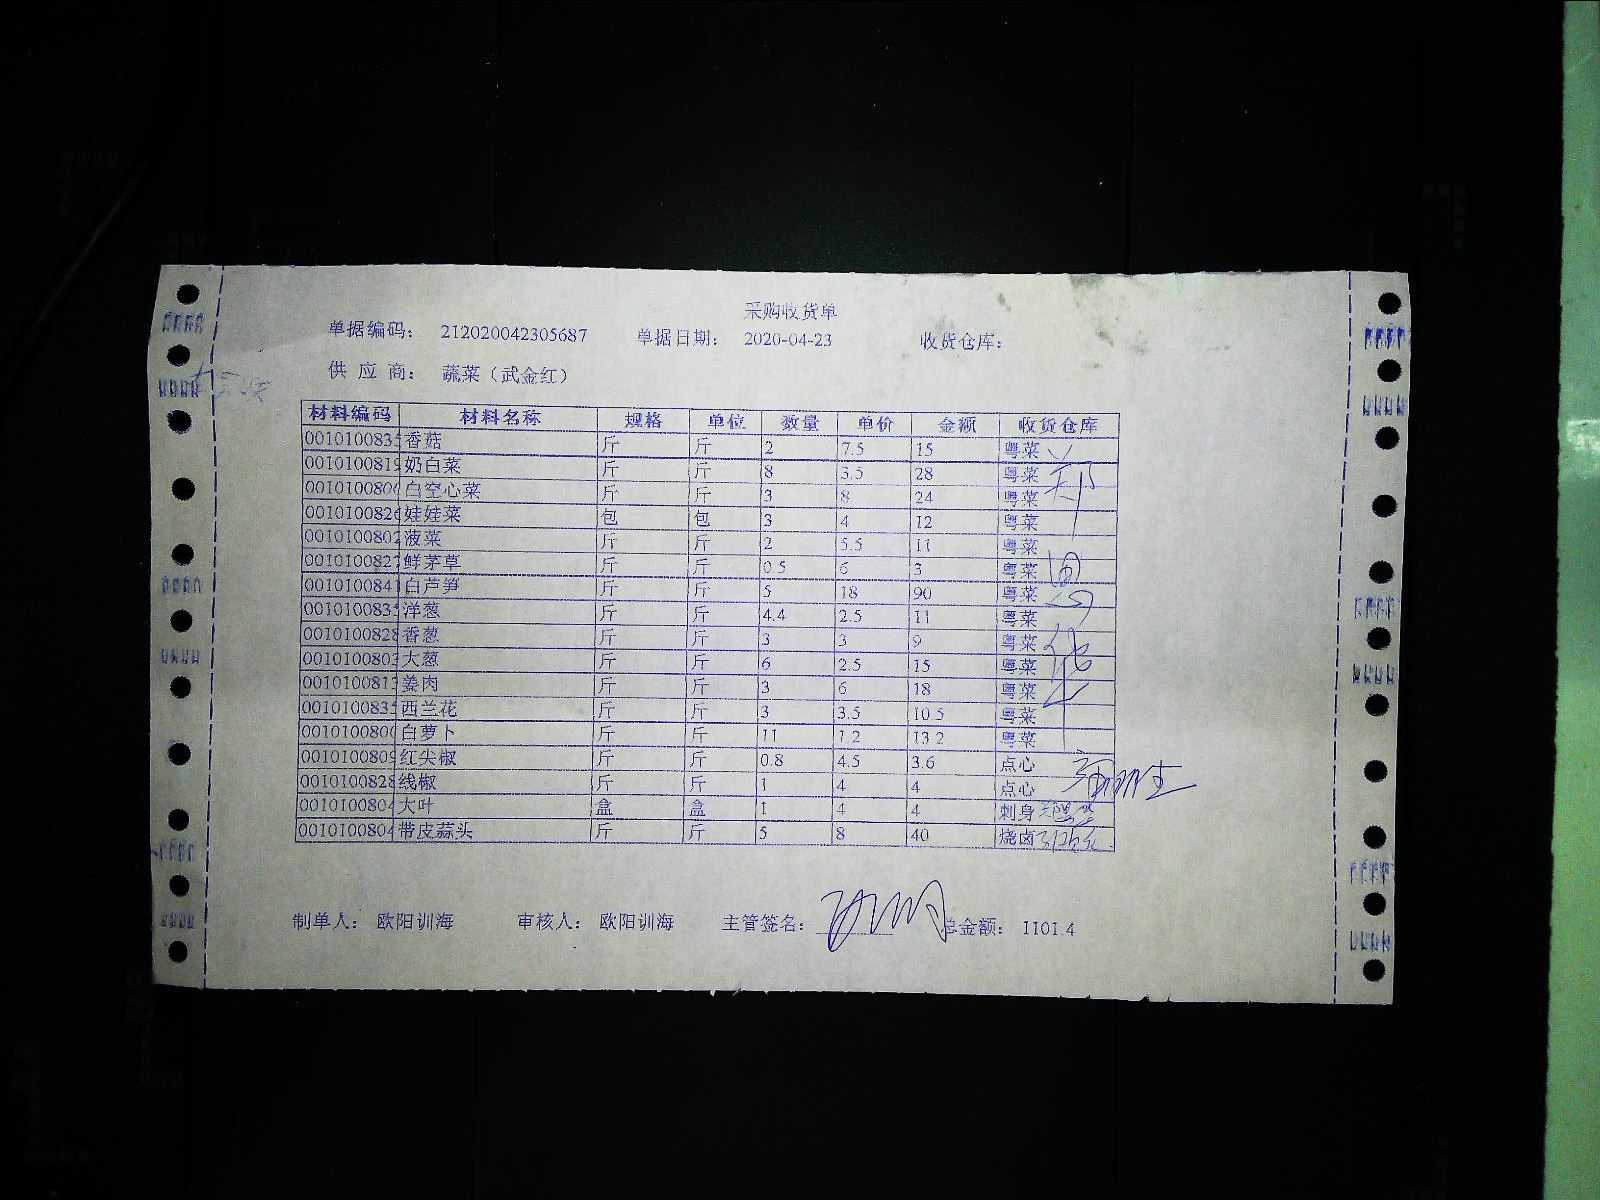 采购收货单
单据编码： 212020042305687 单据日期： 2020-04-23 收货仓库：
供 应 商： 蔬菜（武金红）
材料编码 材料名称 规格 单位 数量 单价 金额 收货仓库
001010083 香菇 斤 斤 2 7.5 15 粤菜
001010081 奶白菜 斤 斤 8 3.5 28 粤菜
001010080 白空心菜 斤 斤 3 8 24 粤菜
001010082 娃娃菜 包 包 3 4 12 粤菜
001010080 菠菜 斤 斤 2 5.5 11 粤菜
001010082 鲜茅草 斤 斤 0.5 6 3 粤菜
001010084 白芦笋 斤 斤 5 18 90 粤菜
001010083 洋葱 斤 斤 4.4 2.5 11 粤菜
001010082 香葱 斤 斤 3 3 9 粤菜
001010080 大葱 斤 斤 6 2.5 15 粤菜
001010081 姜肉 斤 斤 3 6 18 粤菜
001010083 西兰花 斤 斤 3 3.5 10.5 粤菜
001010080 白萝卜 斤 斤 11 1.2 13.2 粤菜
001010080 红尖椒 斤 斤 0.8 4.5 3.6 点心
001010082 线椒 斤 斤 1 4 4 点心
001010080 大叶 盒 盒 1 4 4 刺身
001010080 带皮蒜头 斤 斤 5 8 40 烧卤
制单人： 欧阳训海 审核人： 欧阳训海 主管签名： 总金额： 1101.4